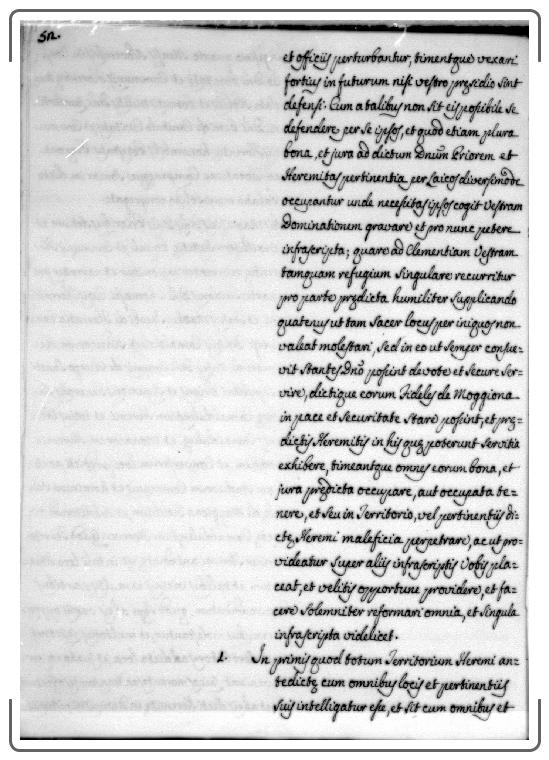 52.
et officijs perturbantur, timentque vexari
fortius in futurum nisi vestro pręsidio sint
defensi: Cum a talibus non sit eis possibile se
defendere per se ipsos, et quod etiam plura
bona, et jura ad dictum Dnũm Priorem et
Heremitas pertinentia per Laicos diversimode
occupantur unde necessitas ipsos cogit Vestram
Dominationem gravare et pro nunc petere
infrascripta; quare ad Clementiam Vestram
tamquam refugium singulare recurritur
pro parte prędicta humiliter supplicando
quatenus ut tam sacer locus per iniquos non
valeat molestari, sed in eo ut semper consue=
vit stantes Dnõ possint devote et secure ser=
vire, dictique eorum Fideles de Moggiona
in pace et securitate stare possint, et prę=
dictis Heremitis in his quę poterunt servitia
exhibere, timeantque omnes eorum bona, et
jura prędicta occupare, aut occupata te=
nere, et seu in Territorio, vel pertinentijs di=
ctę Heremi maleficia perpetrare, ac ut pro=
videatur super alijs infrascriptis Vobis pla=
ceat, et velitis opportune providere, et fa=
cere solemniter reformari omnia, et singula
infrascripta videlicet.
1. In primis quod totum Territorium Heremi an=
tedictę cum omnibus locis et pertinentijs
suis intelligatur esse, et sit cum omnibus et